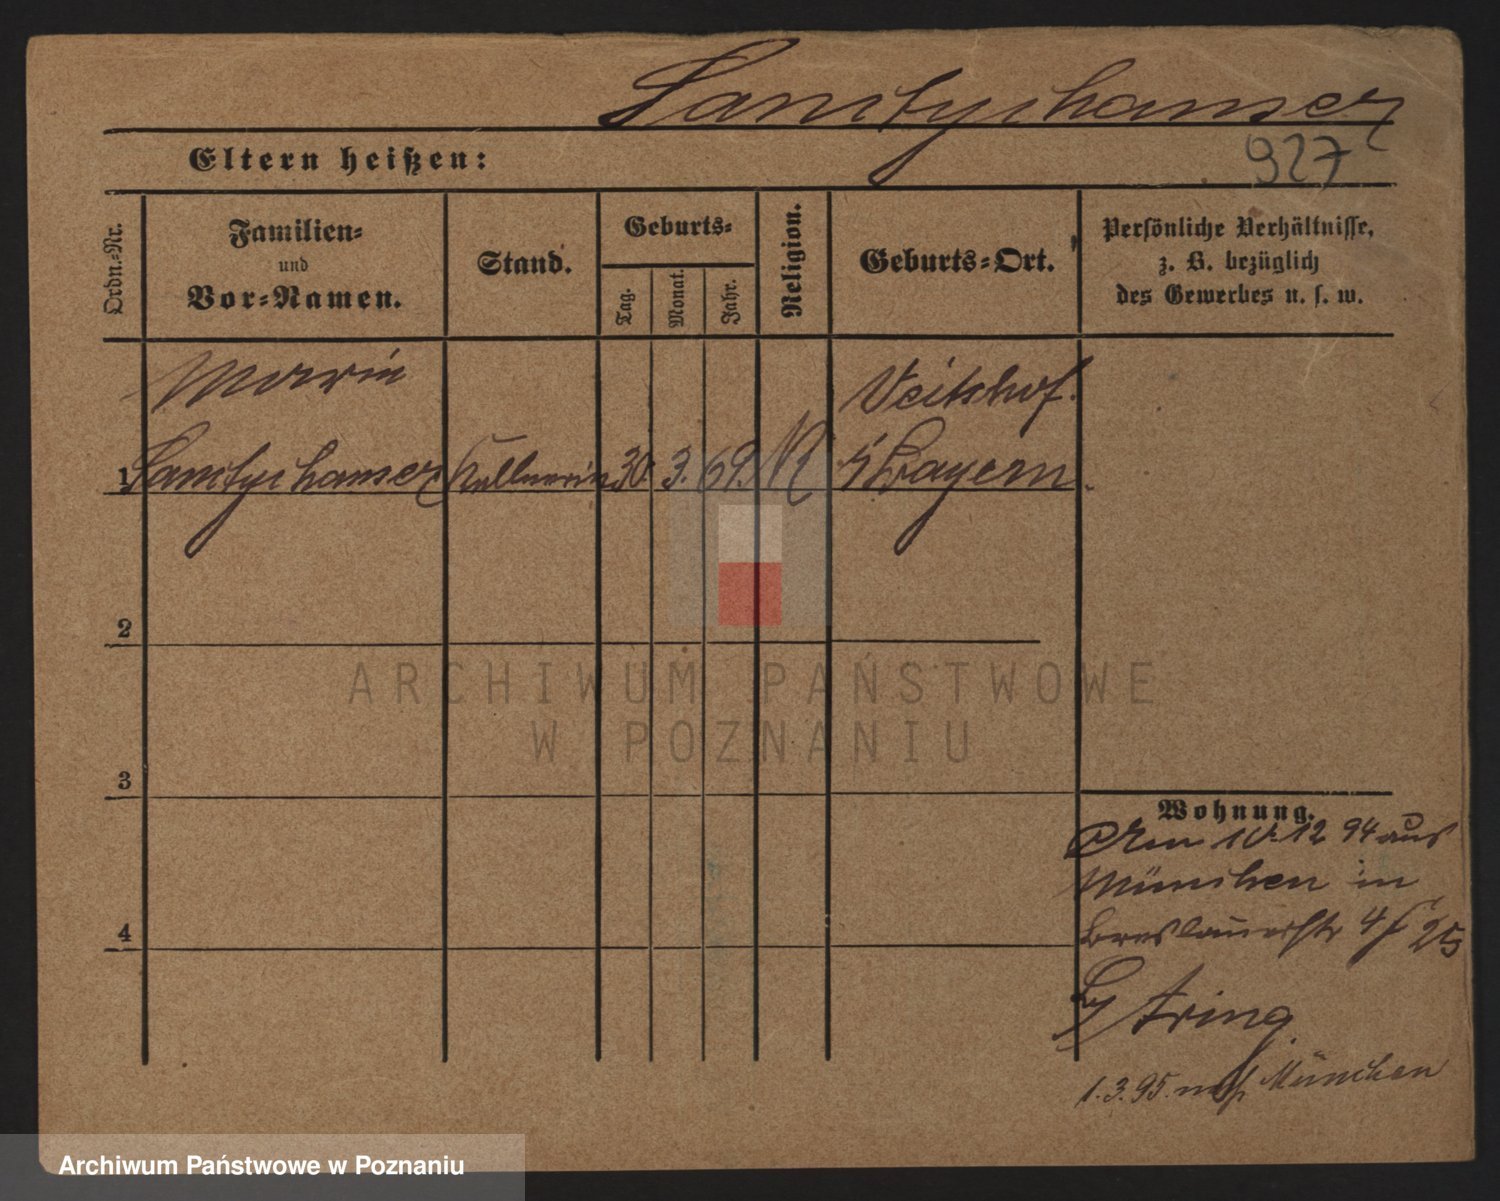 927
Eltern heißen:
Ordn.-Nr.
Familien-
und
Vor-Namen.
Stand.
Geburts-
Tag.
Monat.
Jahr.
Religion.
Geburts-Ort.
Persönliche Verhältnisse,
z. B. bezüglich
des Gewerbes u. s. w.
Marie
Veitshof.
1
Kellnerin
30.
3.
69.
Bayern.
2
ARCHIWUM PAŃSTWOWE
W POZNANIU
3
Wohnung.
Am 10.12 94 aus
München in
Breslauerstr 4
4
1.3.95. nach München
Archiwum Państwowe w Poznaniu